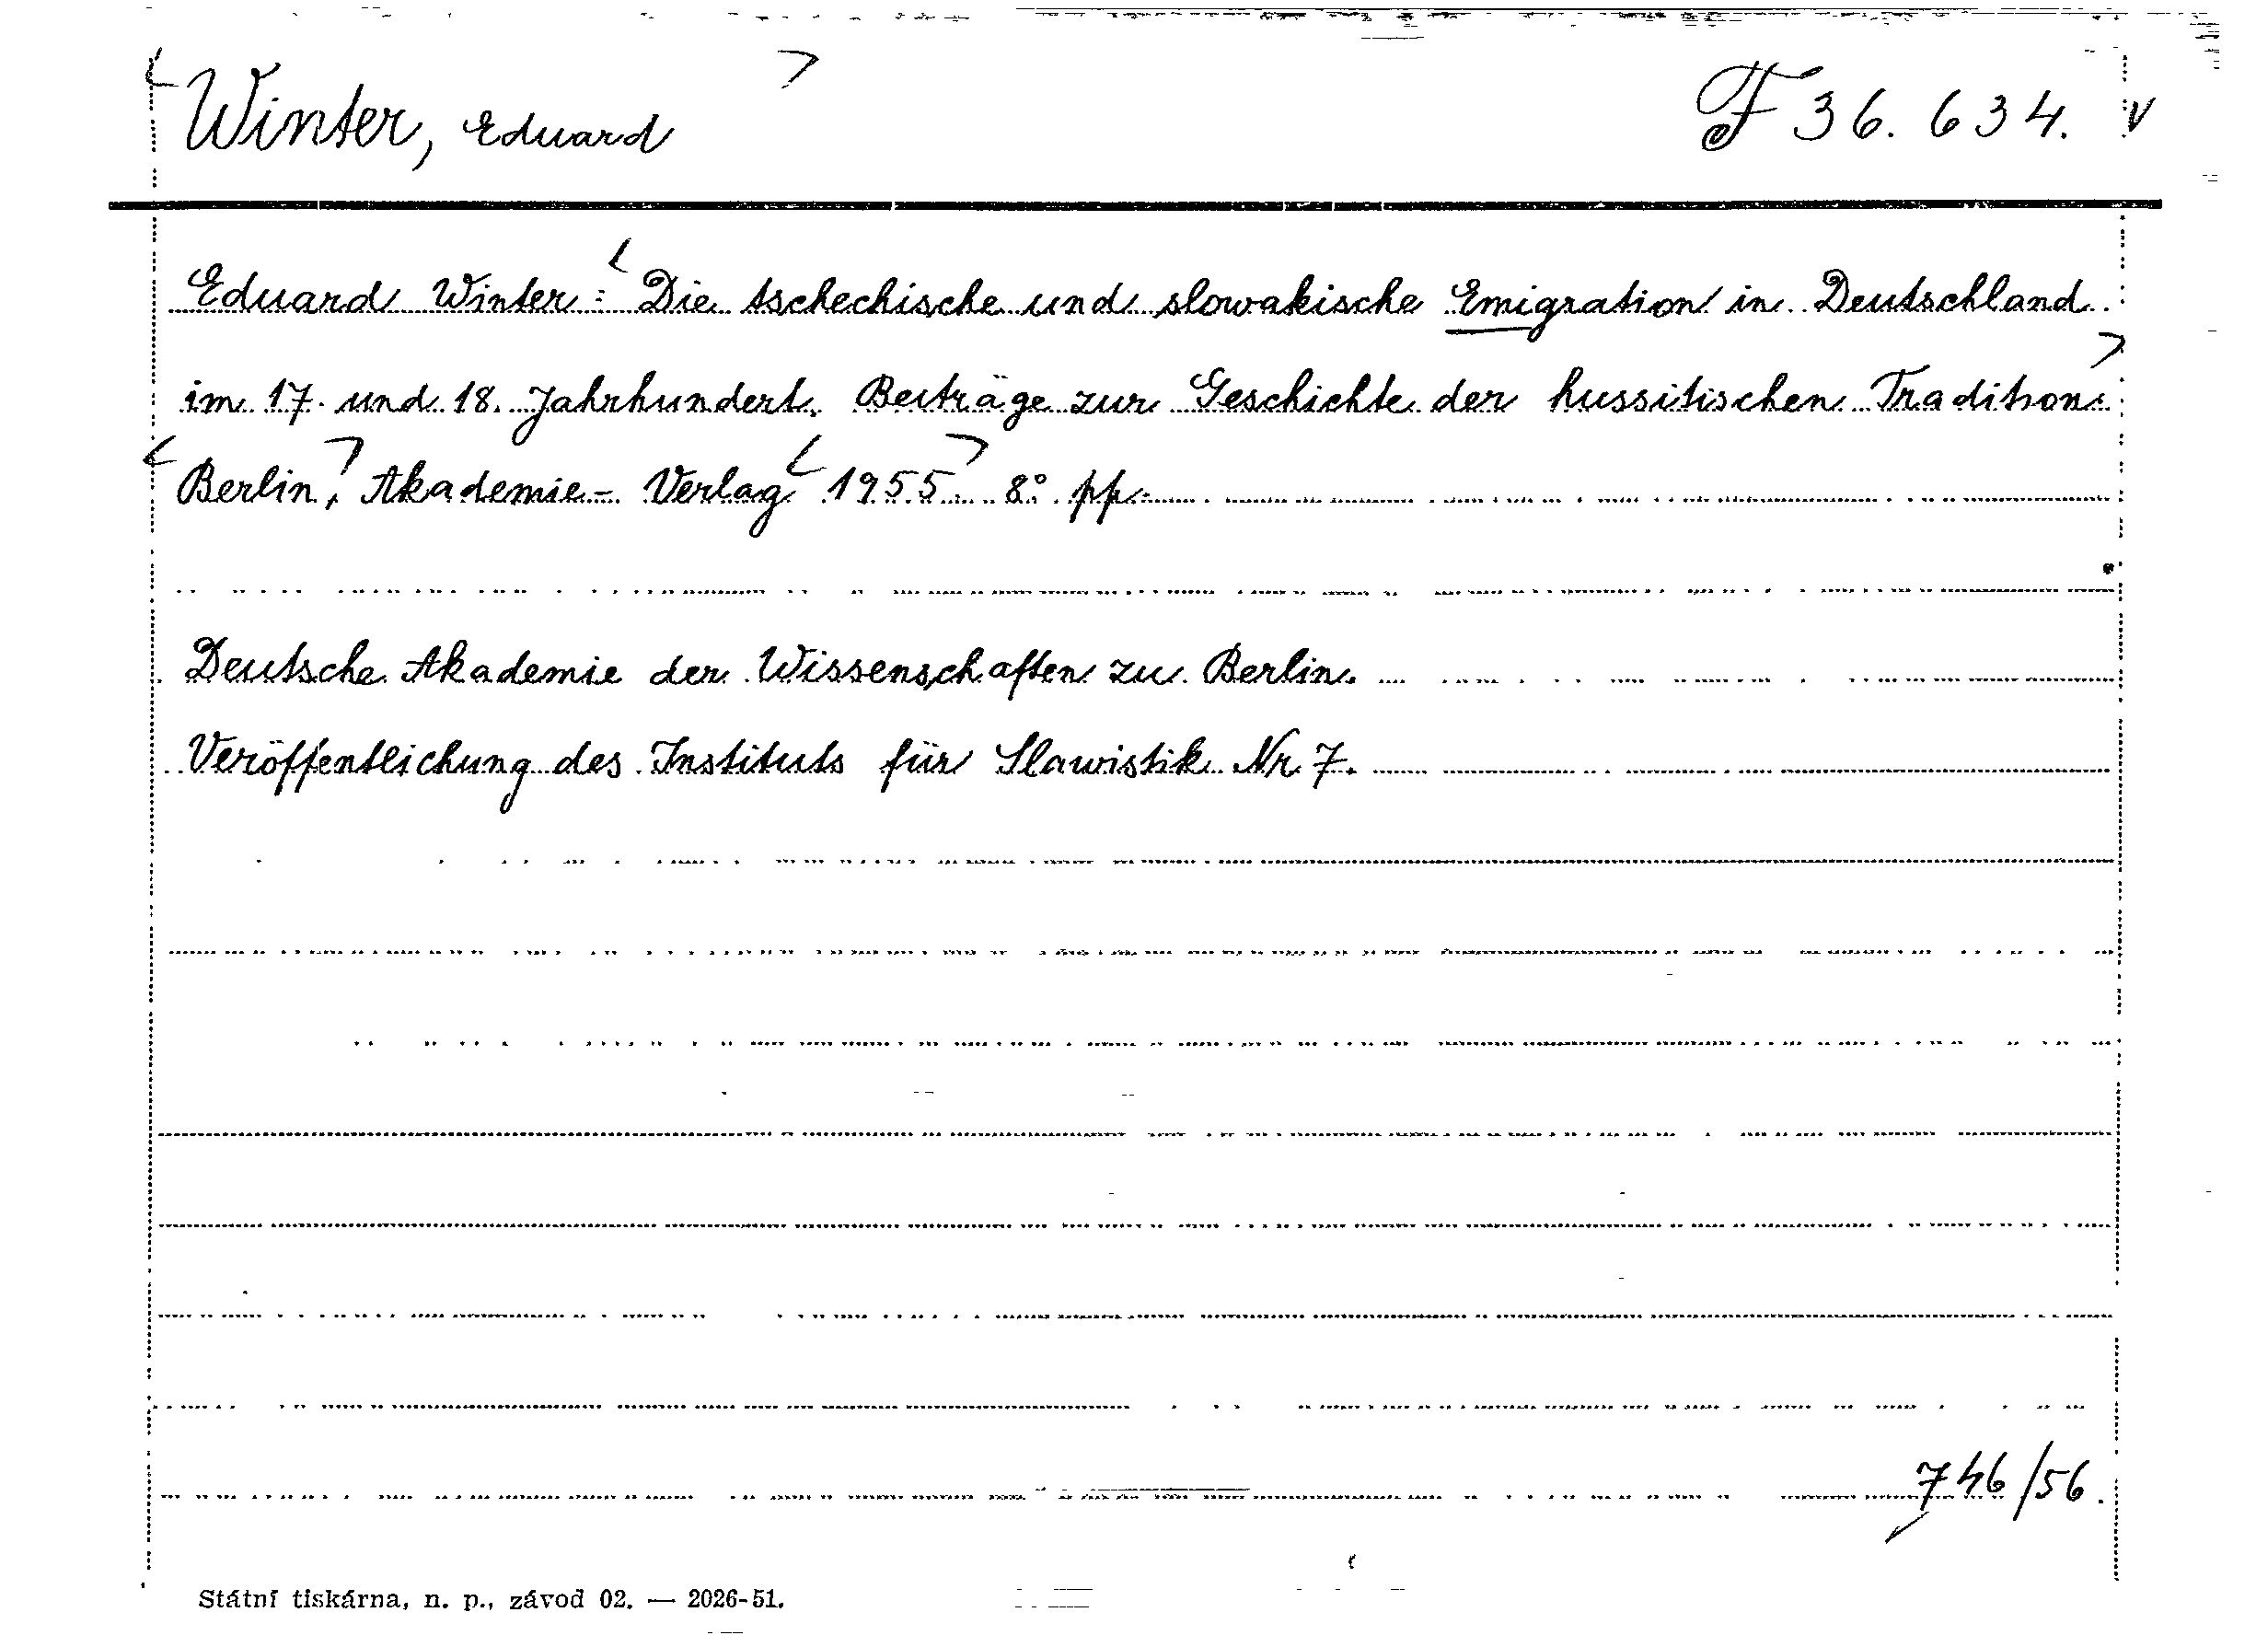 Winter, Eduard F 36.634. v
Eduard Winter: Die tschechische und slowakische Emigration in Deutschland
im 17. und 18. Jahrhundert. Beiträge zur Geschichte der hussitischen Tradition.
Berlin, Akademie-Verlag 1955. 8° pp.
Deutsche Akademie der Wissenschaften zu Berlin.
Veröffentlichung des Instituts für Slawistik Nr. 7.
746/56.
Státní tiskárna, n. p., závod 02. — 2026-51.